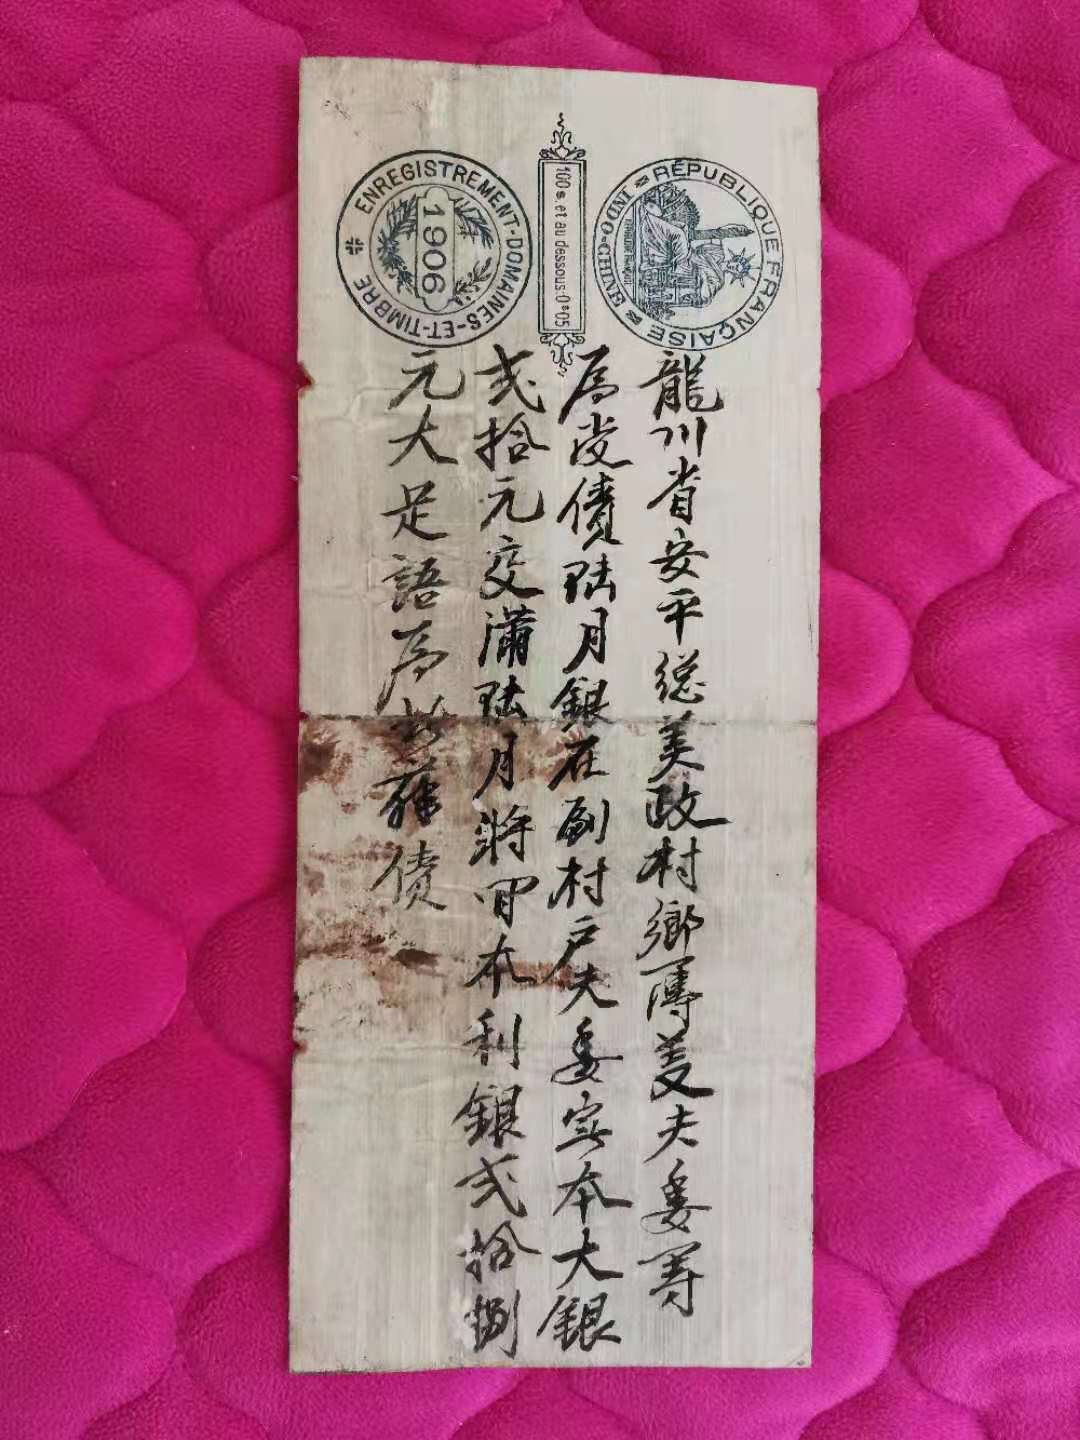 ENREGISTREMENT-DOMAINES-ET-TIMBRE
1906
100 $. et au dessous: 0 $ 05
RÉPUBLIQUE FRANÇAISE
INDO-CHINE
龍川省安平総美政村鄉簿美夫妻等
為受債陆月銀在副村户夫妻寔本大銀
弍拾元交滿陆月將回本利銀弍拾捌
元大足語為此蘓债